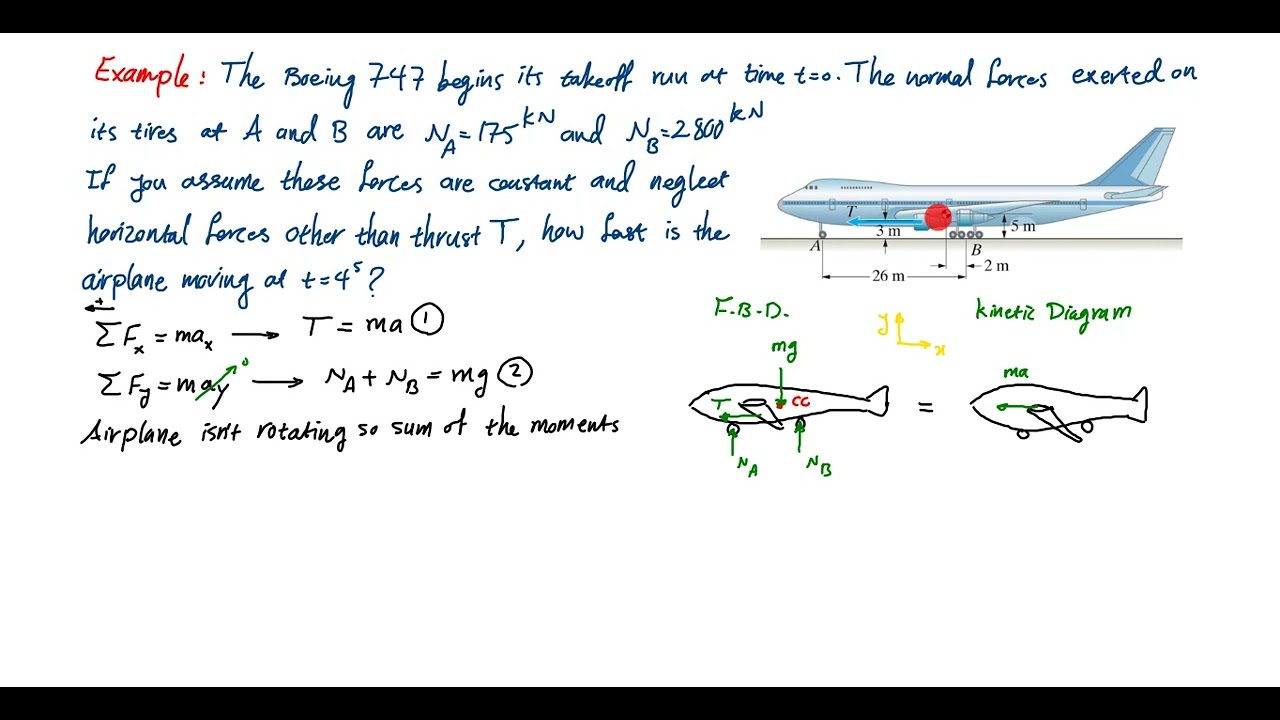 Example: The Boeing 747 begins its takeoff run at time t=0. The normal forces exerted on
its tires at A and B are N_A=175 kN and N_B=2800 kN
If you assume these forces are constant and neglect
horizontal forces other than thrust T, how fast is the
airplane moving at t=4s?
T
3 m
5 m
A
B
2 m
26 m
+
ΣF_x = ma_x → T = ma ①
ΣF_y = ma_y 0 → N_A + N_B = mg ②
Airplane isn't rotating so sum of the moments
F.B.D.
y
x
Kinetic Diagram
mg
T
CG
N_A
N_B
=
ma